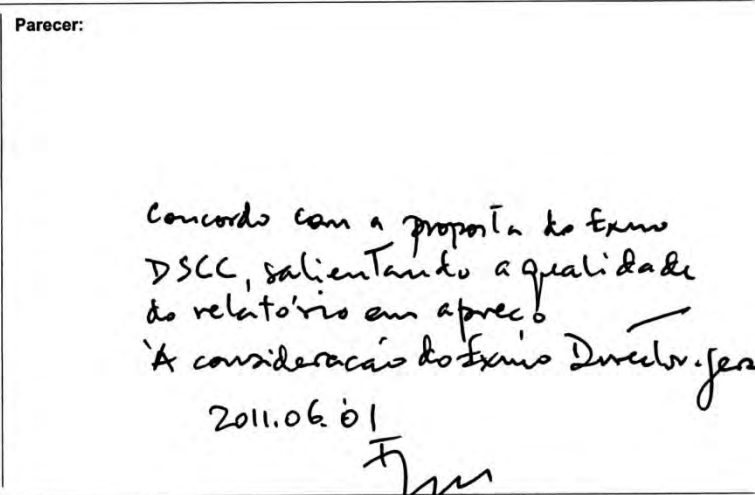 Parecer:
Concordo com a proposta do Exmo
DSCC, salientando a qualidade
do relatório em apreço
À consideração do Exmo Director-Gera
2011.06.01